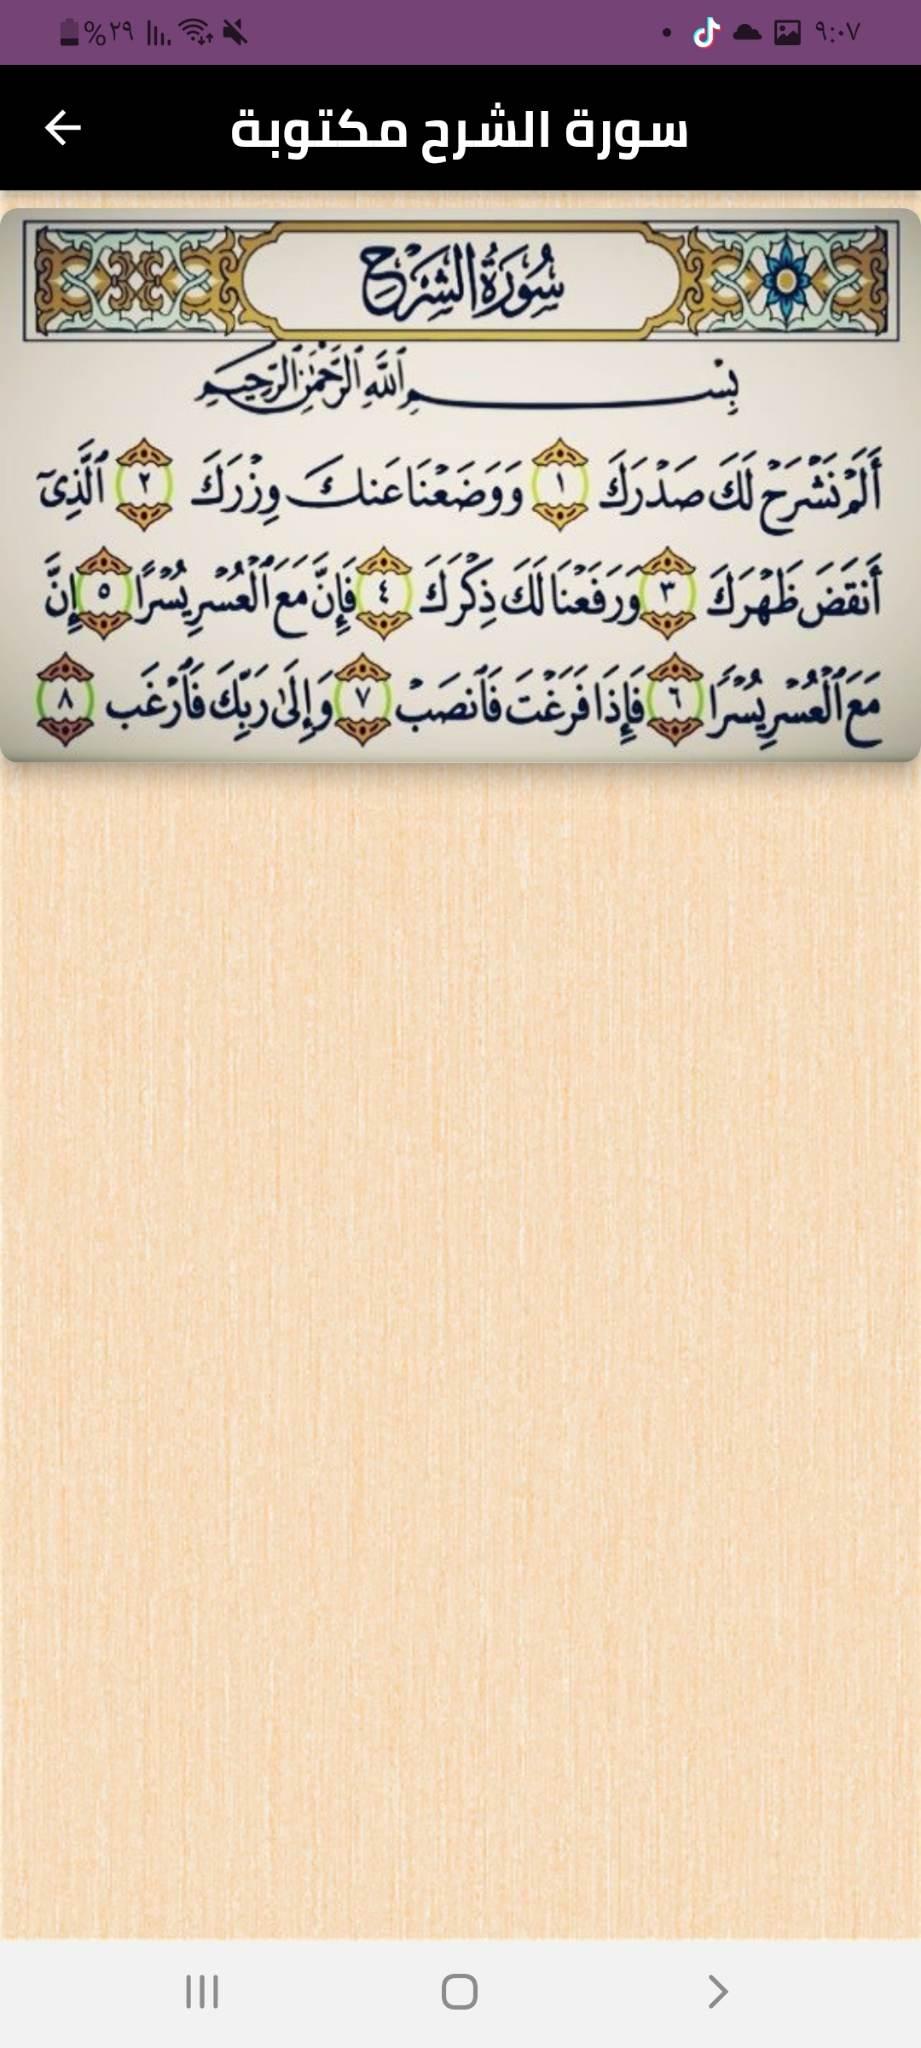 ٩:٠٧ %٢٩
سورة الشرح مكتوبة
سُورَةُ الشَّرْح
بِسْمِ ٱللَّهِ ٱلرَّحْمَٰنِ ٱلرَّحِيمِ
أَلَمْ نَشْرَحْ لَكَ صَدْرَكَ ١ وَوَضَعْنَا عَنكَ وِزْرَكَ ٢ ٱلَّذِىٓ
أَنقَضَ ظَهْرَكَ ٣ وَرَفَعْنَا لَكَ ذِكْرَكَ ٤ فَإِنَّ مَعَ ٱلْعُسْرِ يُسْرًا ٥ إِنَّ
مَعَ ٱلْعُسْرِ يُسْرًا ٦ فَإِذَا فَرَغْتَ فَٱنصَبْ ٧ وَإِلَىٰ رَبِّكَ فَٱرْغَب ٨